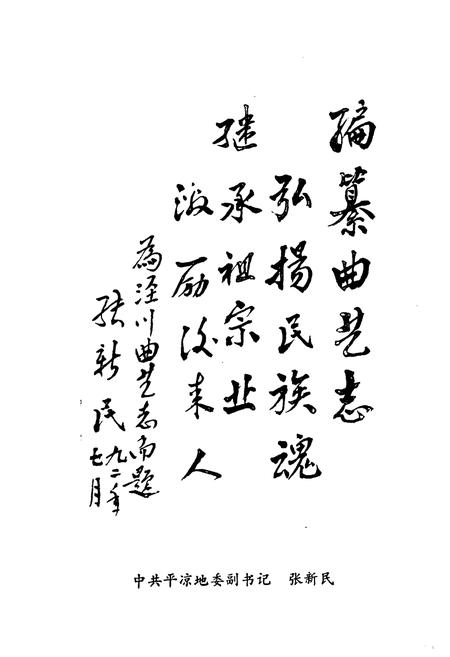 编纂曲艺志
弘揚民族魂
继承祖宗业
激励后来人
為泾川曲艺志而题
张新民 九二年
七月
中共平凉地委副书记 张新民